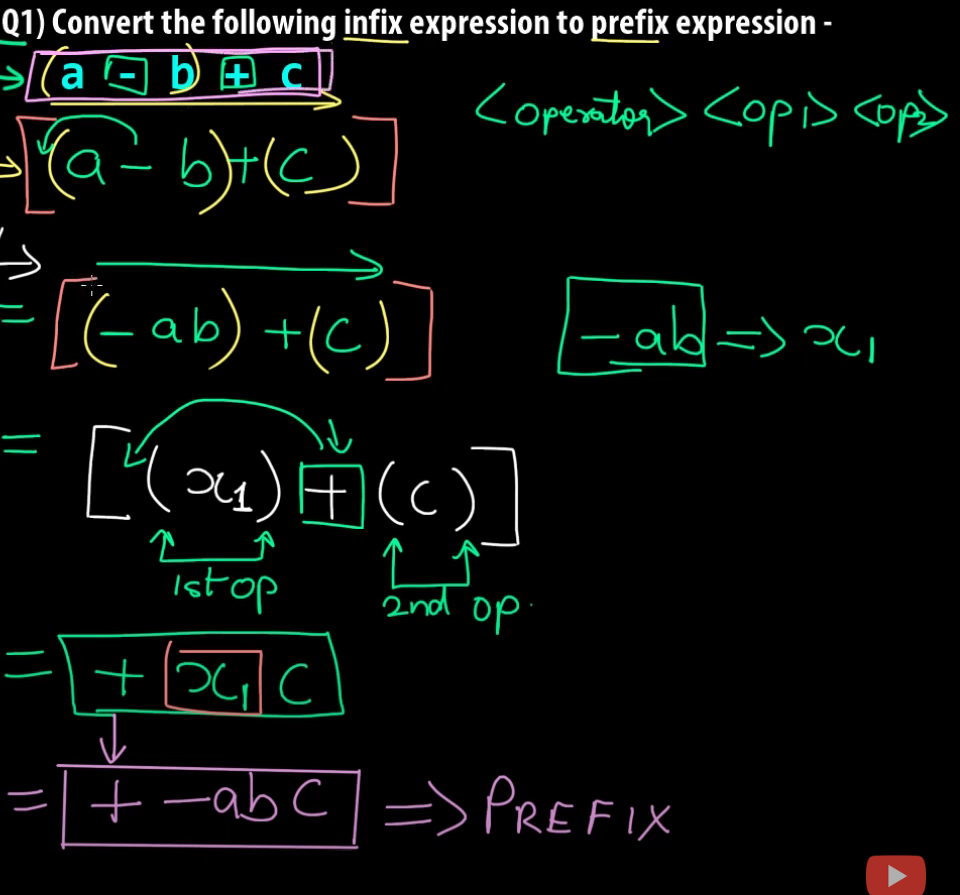 Q1) Convert the following infix expression to prefix expression -
(a - b) + c
<operator> <op1> <op2>
[(a - b)+(c)]
= [(- ab) +(c)]
- ab => x1
= [(x1) + (c)]
1st op
2nd op.
= + x1 c
= + -abc => PREFIX